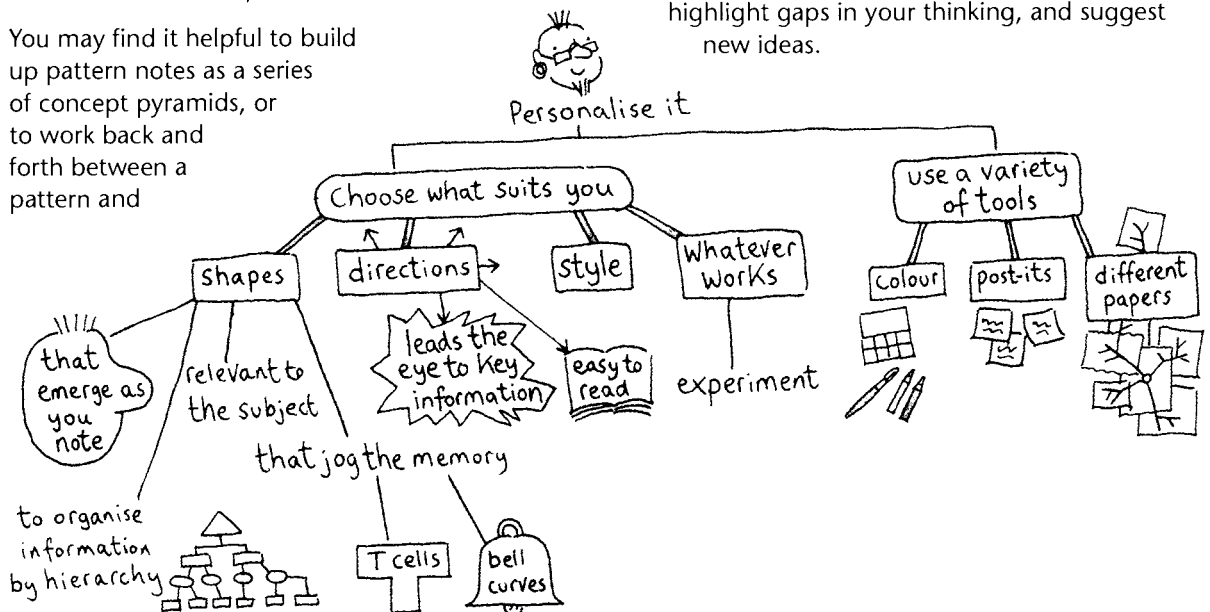 You may find it helpful to build
up pattern notes as a series
of concept pyramids, or
to work back and
forth between a
pattern and
highlight gaps in your thinking, and suggest
new ideas.
Personalise it
Choose what suits you
use a variety
of tools
shapes
directions
style
whatever
works
colour
post-its
different
papers
that
emerge as
you
note
relevant to
the subject
leads the
eye to key
information
easy to
read
experiment
that jog the memory
to organise
information
by hierarchy
T cells
bell
curves